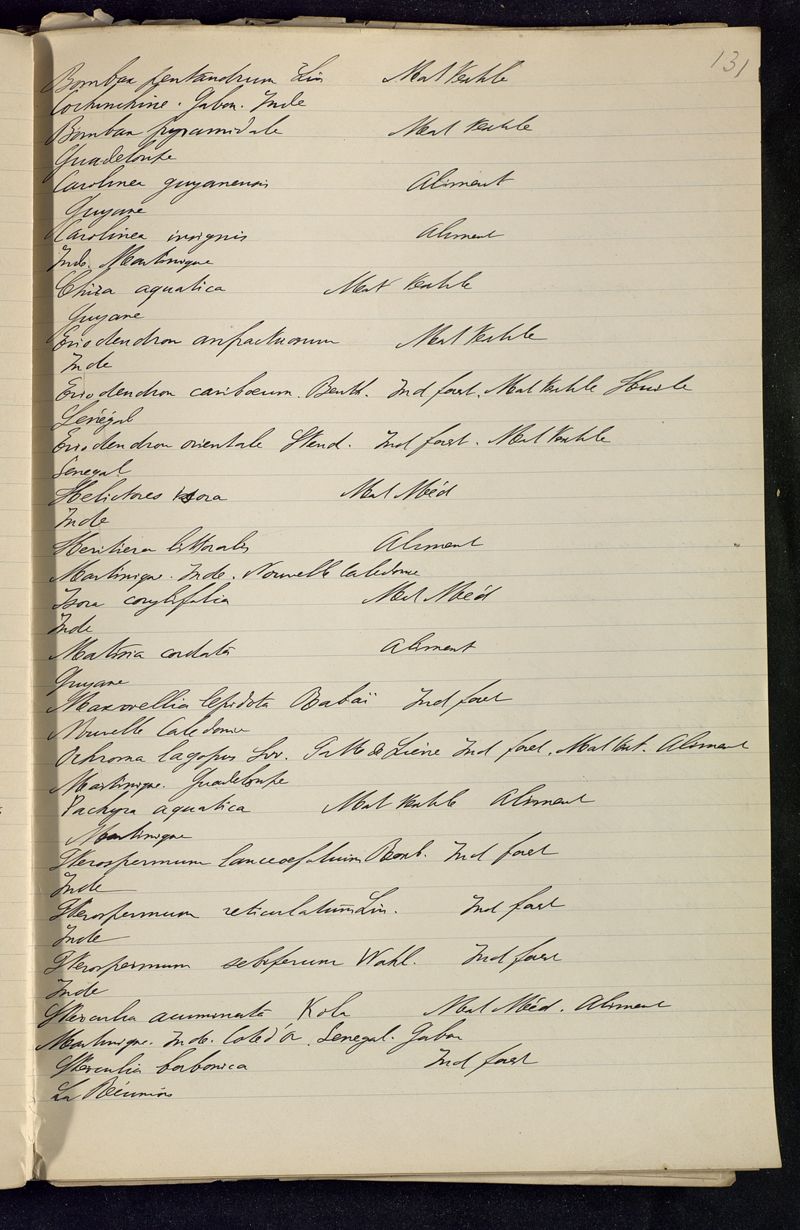 131
Bombax pentandrum Lin Mat textile
Cochinchine. Gabon. Inde
Bombax pyramidale Mat textile
Guadeloupe
Carolinea guyanensis Aliment
Guyane
Carolinea insignis Aliment
Inde. Martinique
aquatica Mat textile
Guyane
Eriodendron anfractuosum Mat textile
Inde
Eriodendron caribœum. Benth. Ind forest. Mat textile Huile
Sénégal
Eriodendron orientale Steud. Ind forest. Mat textile
Senegal
Helicteres Isora Mat Méd
Inde
Heritiera littoralis Aliment
Martinique. Inde. Nouvelle Caledonie
Isora corylifolia Mat Méd
Inde
Matisia cordata Aliment
Guyane
Maxwellia lepidota Ind forest
Nouvelle Caledonie
Ochroma lagopus Sw. Patte de Lièvre Ind forest. Mat text. Aliment
Martinique. Guadeloupe
Pachyra aquatica Mat textile Aliment
Martinique
Pterospermum lanceœfolium Roxb. Ind forest
Inde
Pterospermum reticulatum Lin. Ind forest
Inde
Pterospermum sebiferum Wahl. Ind forest
Inde
Sterculia acuminata Kola Mat Méd. Aliment
Martinique. Inde. Cote d'Or. Senegal. Gabon
Sterculia borbonica Ind forest
La Réunion